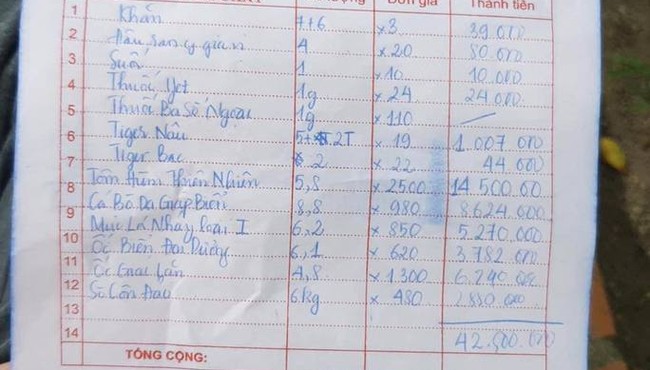 Đơn giá Thành tiền
1 Khăn 7+6 x 3 39.000
2 Đậu rang gia vị 4 x 20 80.000
3 Suối 1 x 10 10.000
4 Thuốc Jet 1g x 24 24.000
5 Thuốc Ba Số Ngoại 1g x 110
6 Tiger Nâu 2T x 19 1.007 000
7 Tiger Bạc 2 x 22 44 000
8 Tôm Hùm Thiên Nhiên 5,8 x 2500 14 500 00
9 Cá Bò Da Giáp Biển 8,8 x 980 8 624 000
10 Mực Lá Nháy Loại I 6,2 x 850 5.270 000
11 Ốc Biển Đại Dương 6,1 x 620 3.782 000
12 Ốc Lân 4,8 x 1300 6.240 000
13 Sò Côn Đảo 6kg x 480 2880 000
14 42.500.000
TỔNG CỘNG: